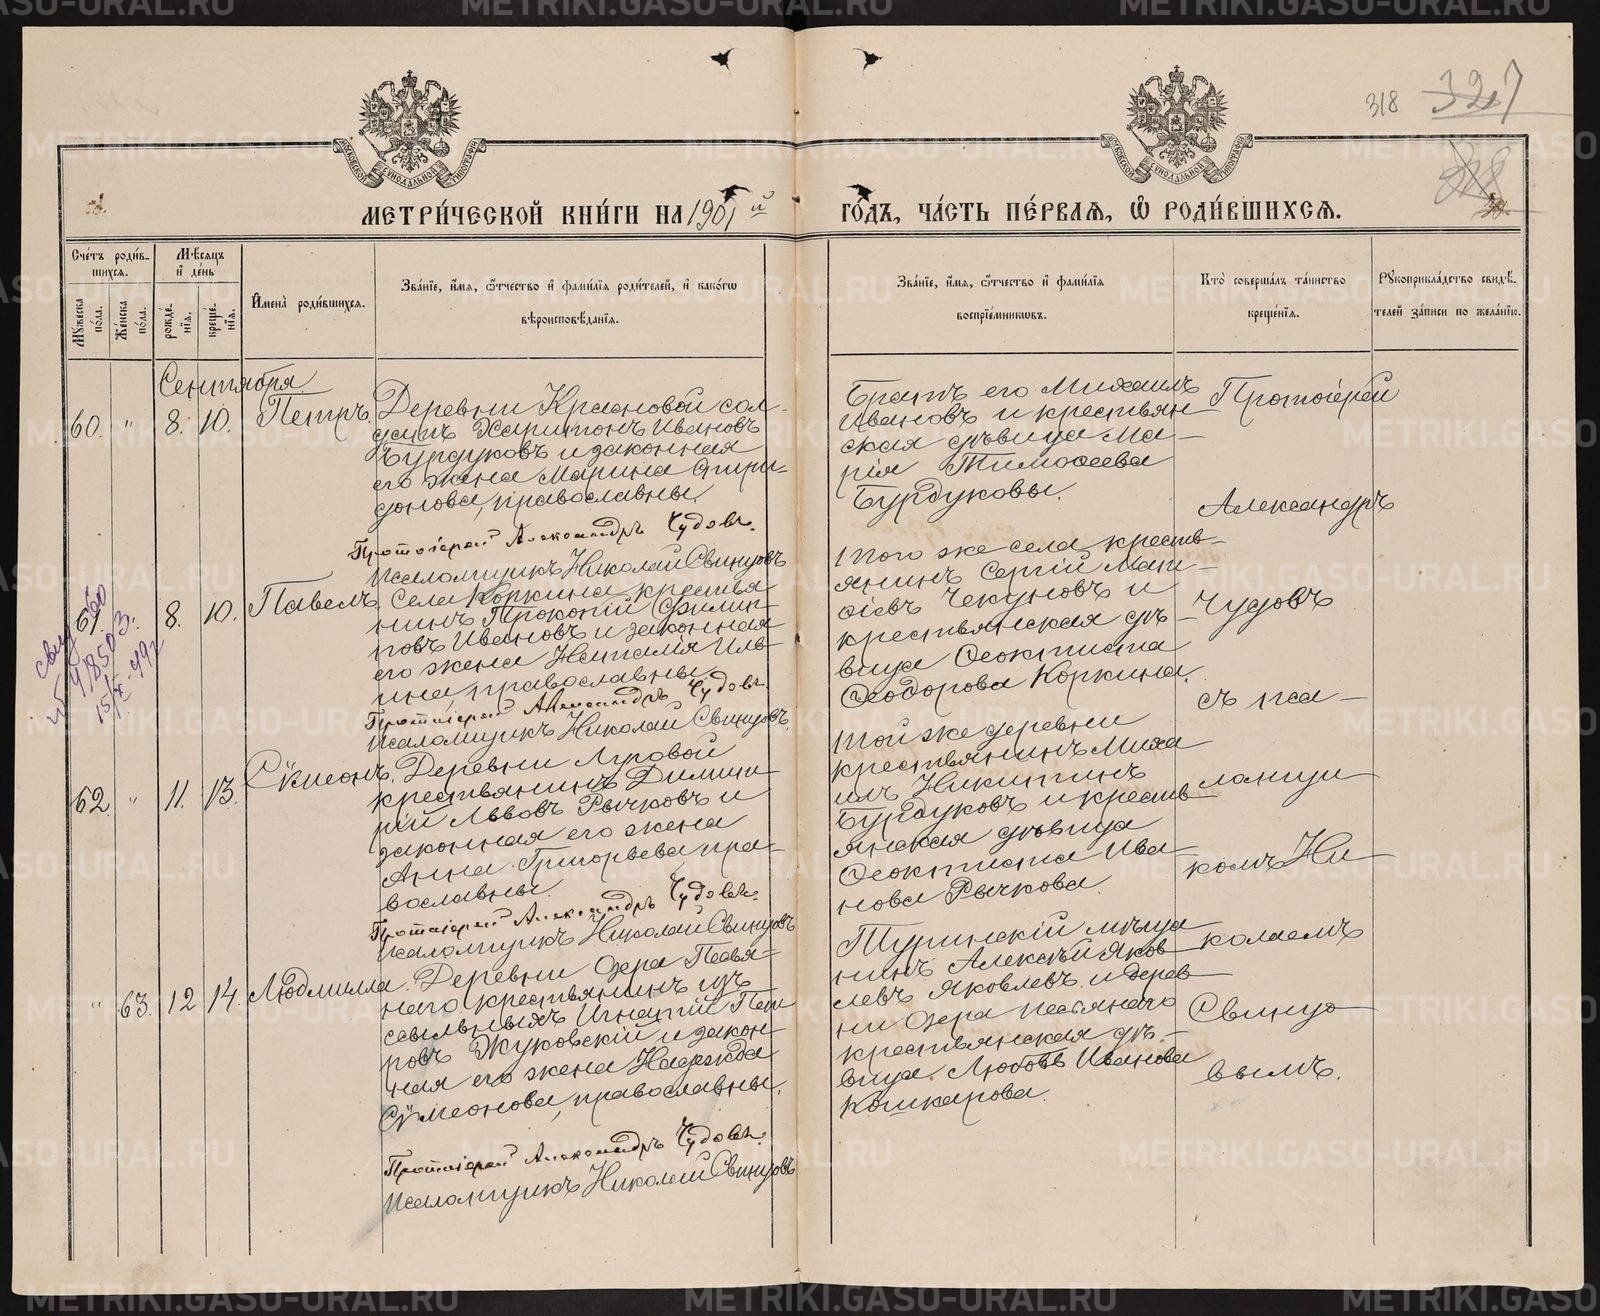 318 327
МЕТРИ́ЧЕСКОЙ КНИ́ГИ НА 1901й ГО́ДЪ, ЧА́СТЬ ПЕ́РВАЯ, Ѡ РОДИ́ВШИХСЯ.
МОСКОВСКОЙ СѴНОДАЛЬНОЙ ТИПОГРАФІИ
МОСКОВСКОЙ СѴНОДАЛЬНОЙ ТИПОГРАФІИ
Сче́тъ роди́в-
шихся.
Мꙋ́жеска по́ла.
Же́нска по́ла.
Мѣ́сяцъ
и҆ де́нь
рожде́нїя.
креще́нїя.
И҆мена̀ роди́вшихся.
Зва́нїе, и҆́мя, ѻ҆́тчество и҆ фами́лїя роди́телей, и҆ како́гѡ
вѣроисповѣ́данїя.
Зва́нїе, и҆́мя, ѻ҆́тчество и҆ фами́лїя
воспрїе́мникѡвъ.
Кто̀ соверша́лъ та́инство
креще́нїя.
Рꙋкоприкла́дство свидѣ́-
телей за́писи по жела́нїю.
Сентября
60. " 8. 10. Петръ.
Деревни Красновой сол-
датъ Харитонъ Ивановъ
Бурдуковъ и законная
его жена Марина Спири-
донова, православны.
Протоіерей Александръ Чудовъ.
Псаломщикъ Николай Свинцовъ
Братъ его Михаилъ
Ивановъ и крестьян
ская дѣвица Ма-
рія Тимоѳеева
Бурдуковы.
61. 8. 10. Павелъ.
Села Коркина крестья
нинъ Прокопій Филип-
повъ Ивановъ и законная
его жена Наталія Иль-
ина, православны.
Протоіерей Александръ Чудовъ.
Псаломщикъ Николай Свинцовъ.
Того же села кресть-
янинъ Сергій Мат-
ѳіевъ Чекуновъ и
крестьянская дѣ-
вица Ѳеоктиста
Ѳеодорова Коркина.
62. " 11. 13. Сѵмеонъ.
Деревни Луговой
крестьянинъ Димит-
рій Львовъ Рычковъ и
законная его жена
Анна Григорьева пра-
вославны.
Протоіерей Александръ Чудовъ.
Псаломщикъ Николай Свинцовъ
Той же деревни
крестьянинъ Миха
илъ Никитинъ
Бурдуковъ и кресть
янская дѣвица
Ѳеоктиста Ива
нова Рычкова.
" 63. 12 14. Людмилла.
Деревни Озера Песья-
наго крестьянинъ изъ
ссыльныхъ Игнатій Пет
ровъ Жуковскій и закон-
ная его жена Надежда
Сѵмеонова, православны.
Протоіерей Александръ Чудовъ.
Псаломщикъ Николай Свинцовъ
Туринскій мѣща
нинъ Алексѣй Яков
левъ Яковлевъ и дерев
ни Озера Песьянаго
крестьянская дѣ-
вица Любовь Иванова
Кошкарова.
Протоіерей
Александръ
Чудовъ
съ пса-
ломщи
комъ Ни
колаемъ
Свинцо
вымъ.
METRIKI.GASO-URAL.RU